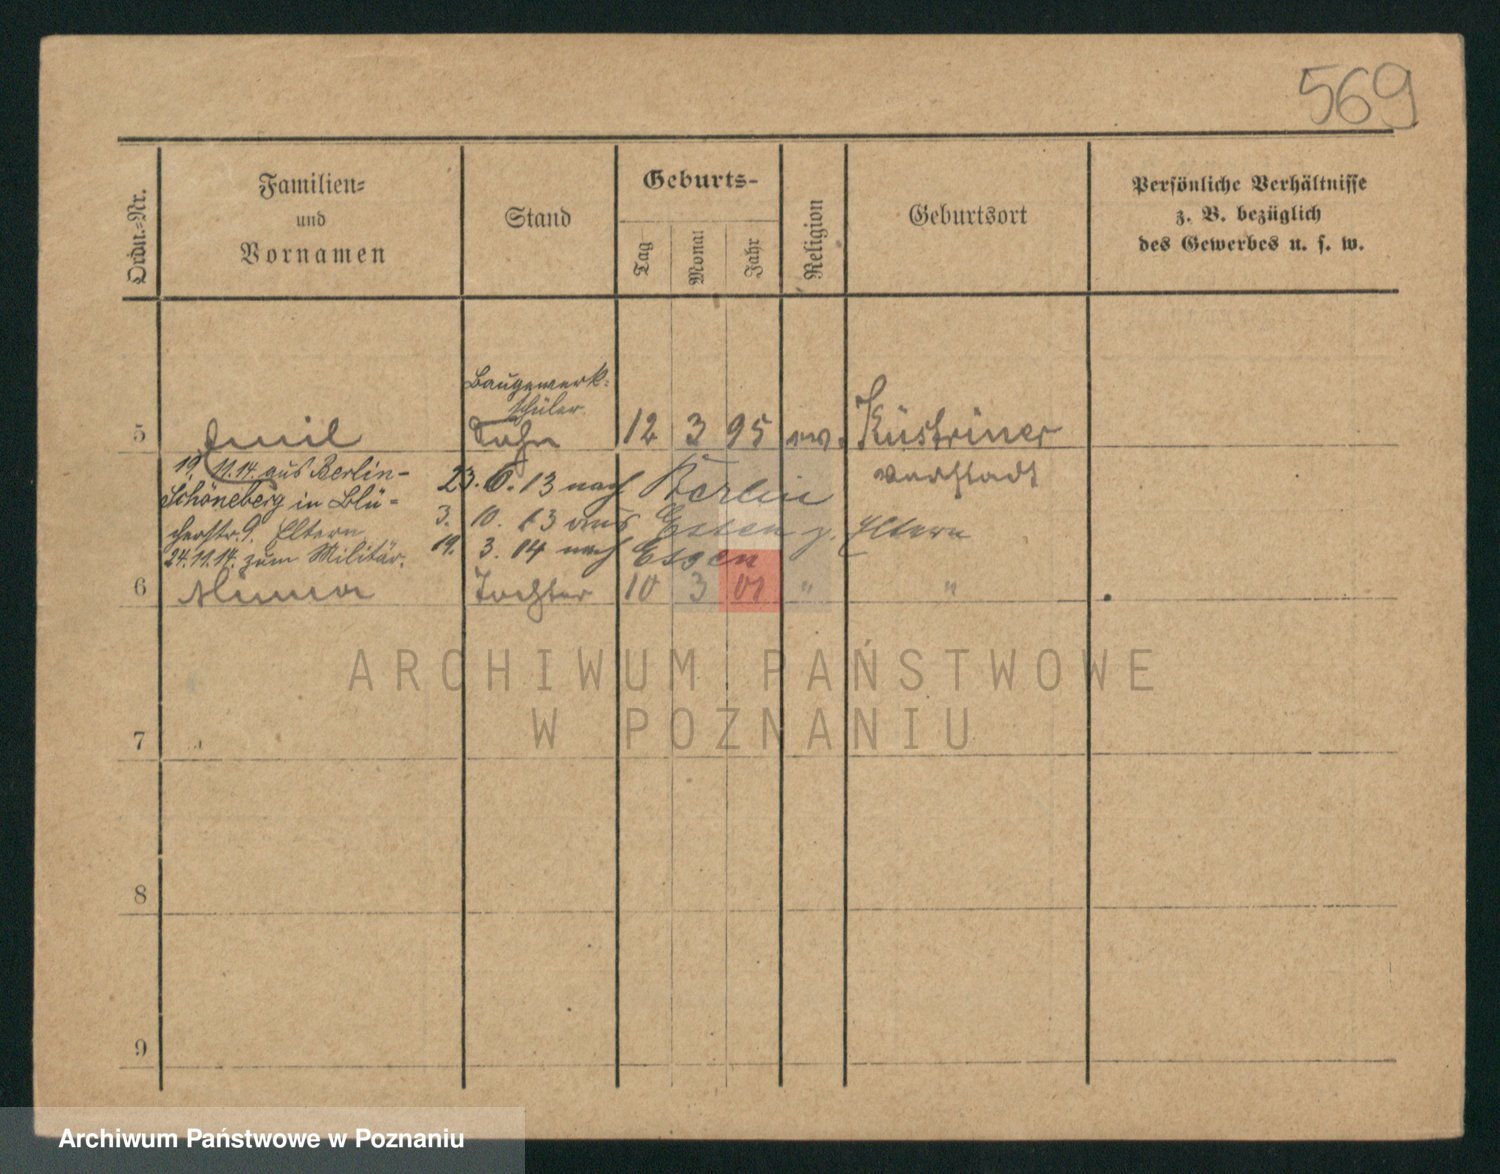 569
Ordn.-Nr.
Familien-
und
Vornamen
Stand
Geburts-
Tag
Monat
Jahr
Religion
Geburtsort
Persönliche Verhältnisse
z. B. bezüglich
des Gewerbes u. s. w.
Baugewerk-
schüler
5 Emil Sohn 12 3 95 ev. Küstriner
Vorstadt
19. 11.14. aus Berlin-
Schöneberg in Blü-
cherstr. 9. Eltern
24.11.14. zum Militär.
23. 6. 13 nach Berlin
3. 10. 13 aus Essen z. Eltern
19. 3. 14 nach Essen
6 Tochter 10 3 01 " "
ARCHIWUM PAŃSTWOWE
W POZNANIU
7
8
9
Archiwum Państwowe w Poznaniu